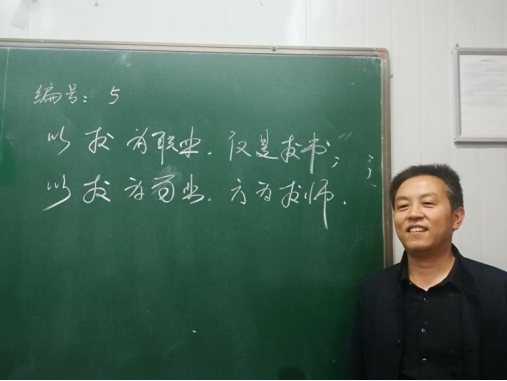 编号: 5
以教为职业. 仅是教书;
以教为业. 方为教师.